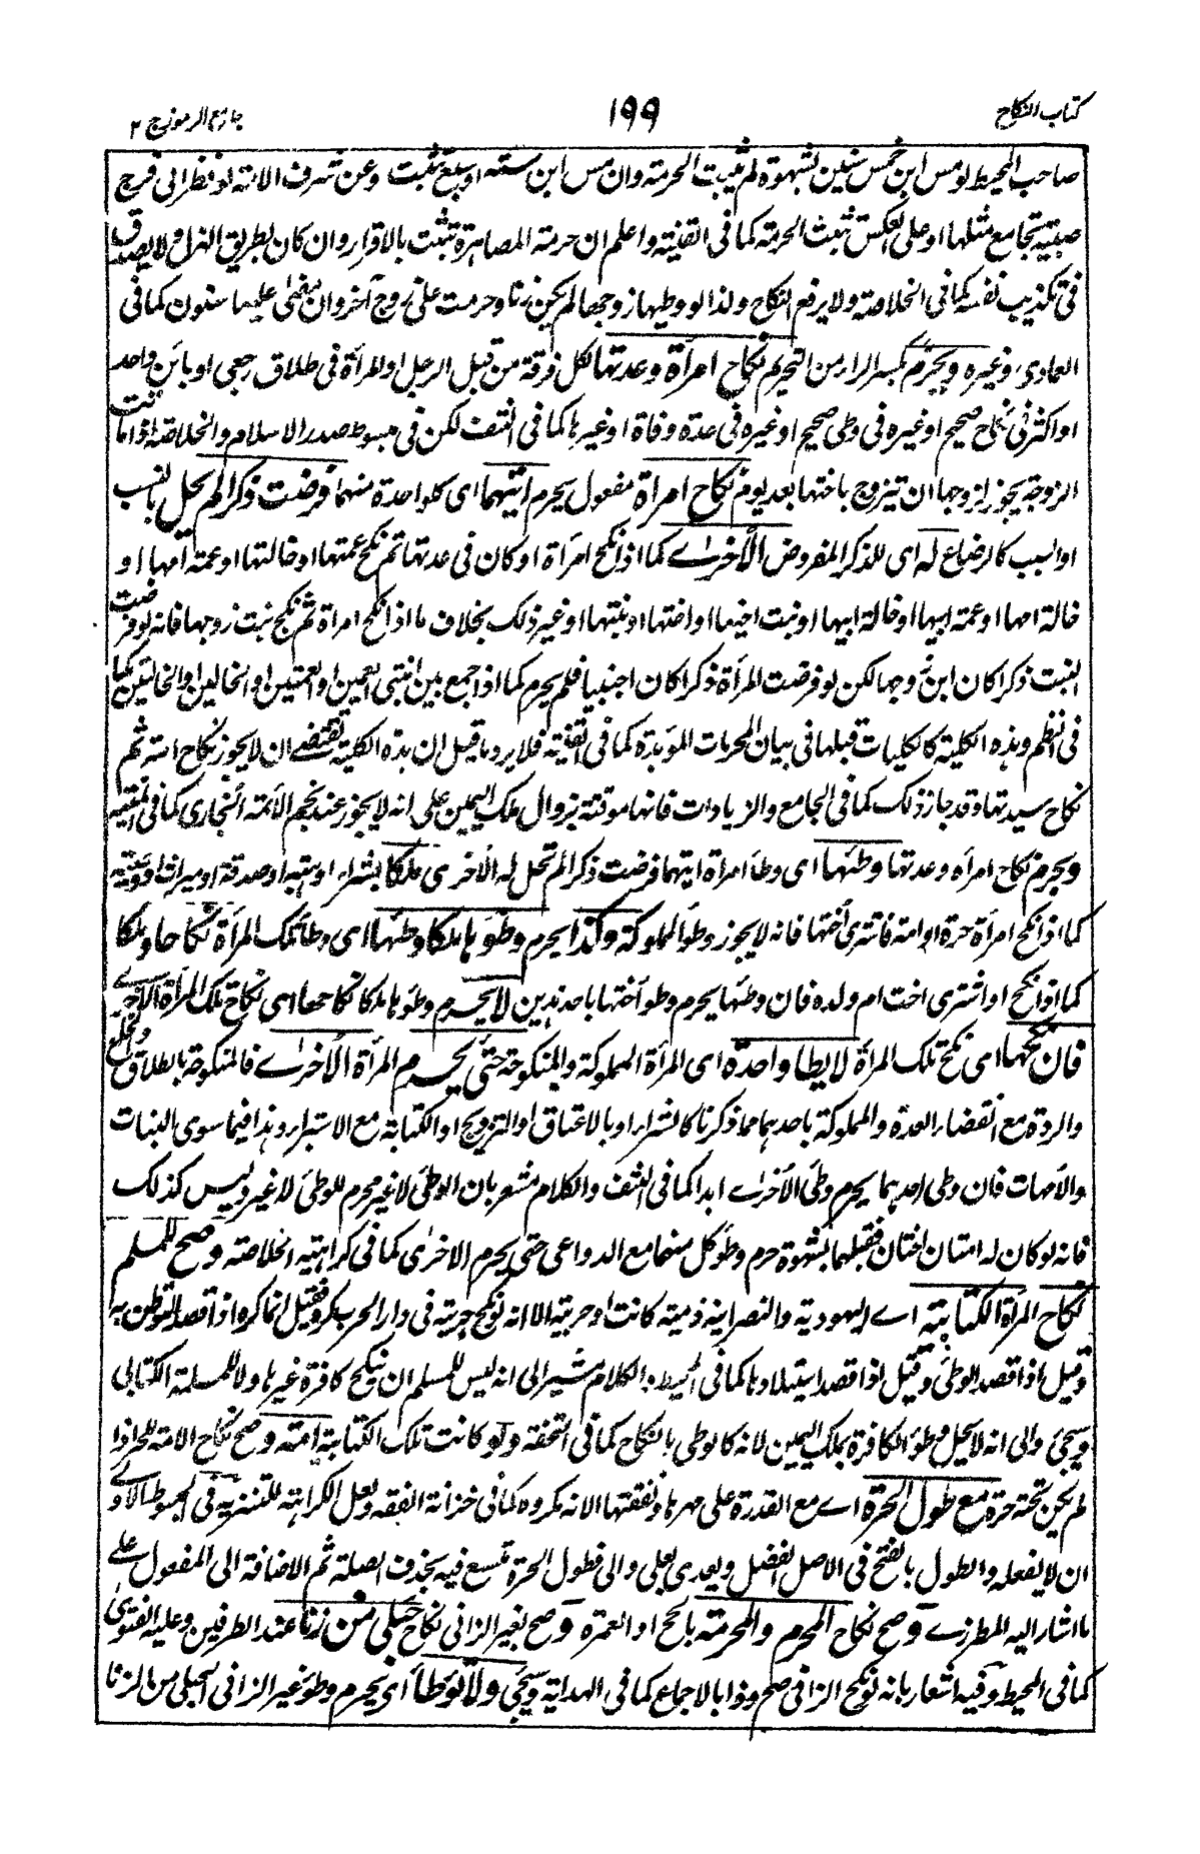 كتاب النكاح
١٩٩
جامع الرموز ج ٢
صاحب المحيط لو مس ابن خمس سنين بشهوة لم يثبت الحرمة وان مس ابن ستة او سبع يثبت وعن شرف الائمة لو نظر الى فرج
صبية تجامع مثلها او على العكس تثبت الحرمة كما في القنية واعلم ان حرمة المصاهرة تثبت بالاقرار وان كان بطريق الهزل ولا يصدق
في تكذيب نفسه كما في الخلاصة ولا يرفع النكاح ولذا لو وطيها زوجها لم يكن زنا وحرمت على زوج آخر وان مضى عليها سنون كما في
العمادي وغيره ويحرم بكسر الراء من التحريم نكاح امرأة وعدتها لكل فرقة من قبل الرجل او المرأة في طلاق رجعي او بائن واحد
او اكثر في نكاح صحيح او غيره في وطي صحيح او غيره في عدة وفاة او غيرها كما في النتف لكن في مبسوط صدر الاسلام والخلاصة اذا ماتت
الزوجة يجوز لزوجها ان تيزوج باختها بعد يوم نكاح امرأة مفعول يحرم ايتهما اى كلواحدة منهما فرضت ذكرا لم يحل بالنسب
او السبب كالرضاع له اى للذكر المفروض الأخرى كما اذا نكح امرأة او كان في عدتها ثم نكح عمتها او خالتها او عمة امها او
خالة امها او عمة ابيها او خالة ابيها او بنت اخيها او اختها او بنتها او غير ذلك بخلاف ما اذا نكح امرأة ثم نكح بنت زوجها فانه لو فرضت
البنت ذكرا كان ابن زوجها لكن لو فرضت المرأة ذكرا كان اجنبيا فلم يحرم كما اذا جمع بين ابنتي العمين او العمتين او الخالين او الخالتين كما
في النظم وهذه الكلية كالكليات قبلها في بيان المحرمات المؤبدة كما في القنية فلا يرد ما قيل ان هذه الكلية تقتضي ان لا يجوز نكاح امة ثم
نكاح سيدتها وقد جاز ذلك كما في الجامع والزيادات فانها موقتة بزوال ملك اليمين على انه لا يجوز عند نجم الأئمة البخاري كما في المنية
ويحرم نكاح امرأة وعدتها وطئها اى وطأ امرأة ايتهما فرضت ذكرا لم تحل له الأخرى ملكا بشراء او هبة او صدقة او ميراث او وصية
كما اذا نكح امرأة حرة او امة فاشترى اختها فانه لا يجوز وطؤ المملوكة وكذا يحرم وطؤها ملكا وطئها اى وطأ تلك المرأة نكاحا وملكا
كما اذا نكح او اشترى اخت ام ولده فان وطئها يحرم وطؤ أختها باحد هذين لا يحرم وطؤها ملكا نكاحها اى نكاح تلك المرأة الأخرى
فان نكحها اى نكح تلك المرأة لا يطأ واحدة اى المرأة المملوكة والمنكوحة حتى يحرم المرأة الأخرى فالمنكوحة بالطلاق والخلع
والردة مع انقضاء العدة والمملوكة باحدهما مما ذكرنا كالشراء او بالاعتاق او التزويج او الكتابة مع الاستبراء وهذا فيما سوى البنات
والأمهات فان وطى احدهما يحرم وطى الأخرى ابدا كما في النتف والكلام مشعر بان الوطئ لا غير محرم للوطئ لا غير وليس كذلك
فانه لو كان له امتان اختان فقبلهما بشهوة حرم وطؤ كل منهما مع الدواعي حتى يحرم الاخرى كما في كراهية الخلاصة وصح للمسلم
نكاح المرأة الكتابية اى اليهودية والنصرانية ذمية كانت او حربية الا انه لو نكح حربية في دار الحرب كره وقيل انما كره اذا قصد التوطن به
وقيل اذا قصد الوطئ وقيل اذا قصد استيلادها كما في المحيط والكلام مشير الى انه ليس للمسلم ان ينكح كافرة غيرها ولا للمسلمة الكتابي
ويجئ والى انه لا يحل وطؤ الكافرة بملك اليمين لانه كالوطى بالنكاح كما في التحفة ولو كانت تلك الكتابية امة وصح نكاح الامة للحر اذا
لم يكن تحته حرة مع طول الحرة اى مع القدرة على مهرها ونفقتها الا انه مكروه كما في خزانة الفقه ولعل الكراهة للتنزيه في المبسوط الاولى
ان لا يفعله والطول بالفتح في الاصل الفضل ويعدى بعلى والى فطول الحرة متسع فيه بحذف الصلة ثم الاضافة الى المفعول على
ما اشار اليه المطرزى وصح نكاح المحرم والمحرمة بالحج او العمرة وصح لغير الزاني نكاح حبلى من زنا عند الطرفين وعليه الفتوى
كما في المحيط وفيه اشعار بانه لو نكح الزاني صح وذا بالاجماع كما في الهداية ويجئ ولا توطأ اى يحرم وطؤ غير الزاني الحبلى من الزنا